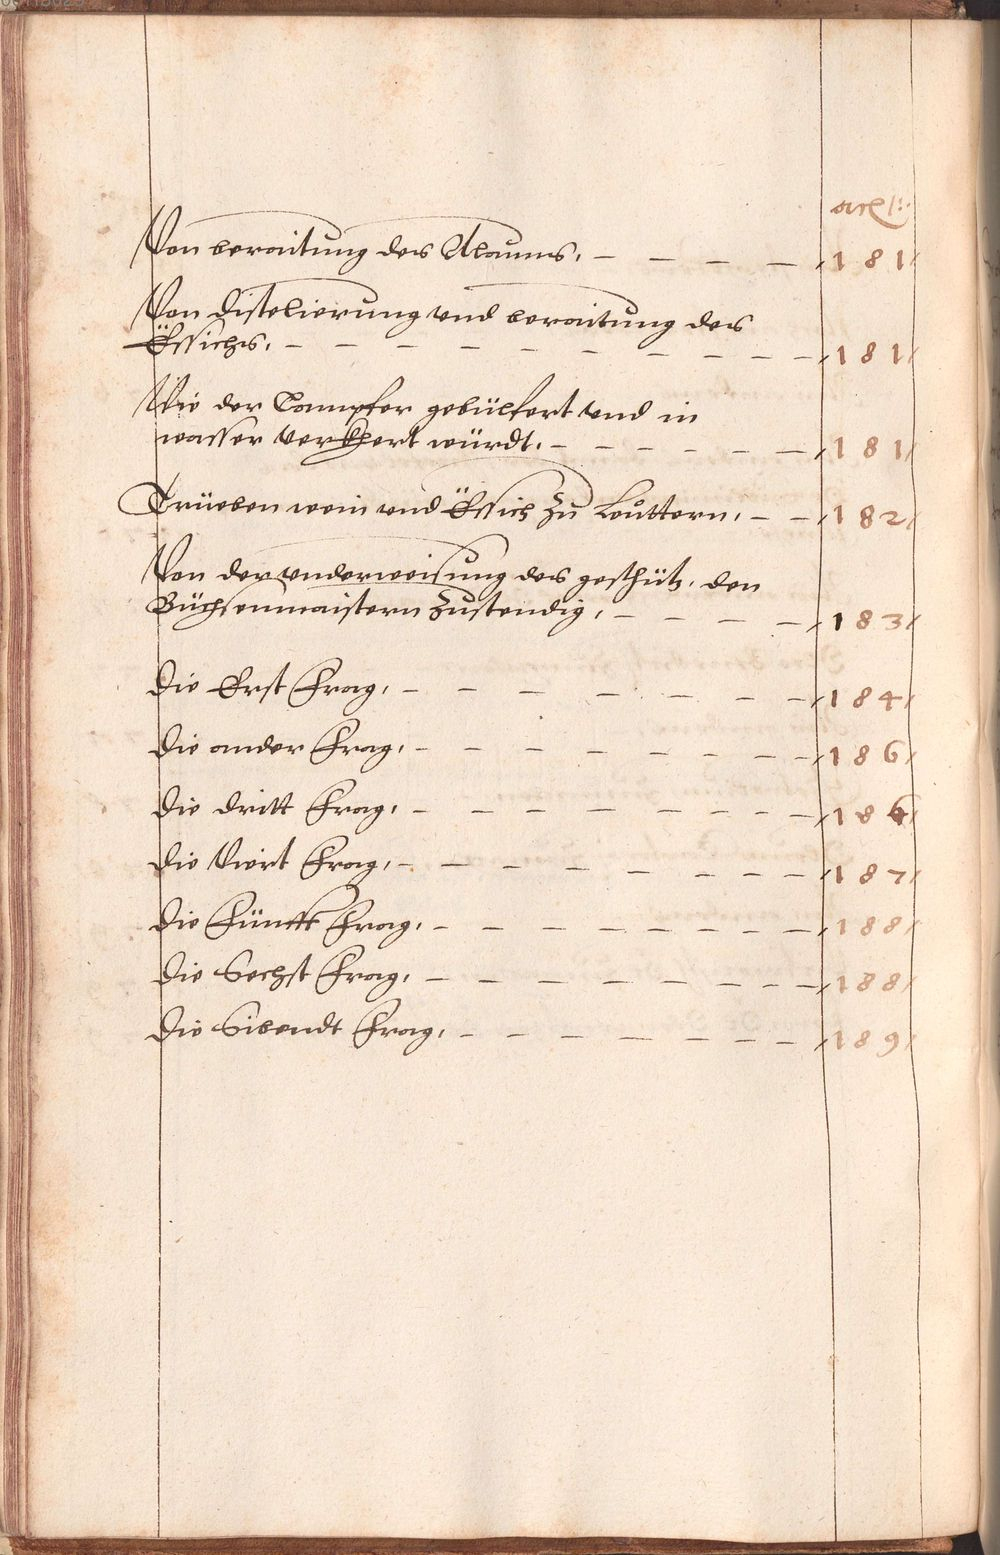 Von beraitung des Alauns, — — — — 181
Von Distelierung vnd beraitung des
Essichs, — — — — — — — — — — 181
Wie der Campfer gebülfert vnd in
wasser verkhert würdt, — — — — — — 181
Trüeben wein vnd Essich zu Leuttern, — — 182
Von der vnderweisung des geschütz, den
Büchsenmaistern zustendig, — — — — 183
Die Erst Frag, — — — — — — — — 184
Die ander Frag, — — — — — — — — 186
Die dritt Frag, — — — — — — — — 186
Die Viert Frag, — — — — — — — — 187
Die Fünfft Frag, — — — — — — — — 188
Die Sechst Frag, — — — — — — — — 188
Die Sibendt Frag, — — — — — — — 189